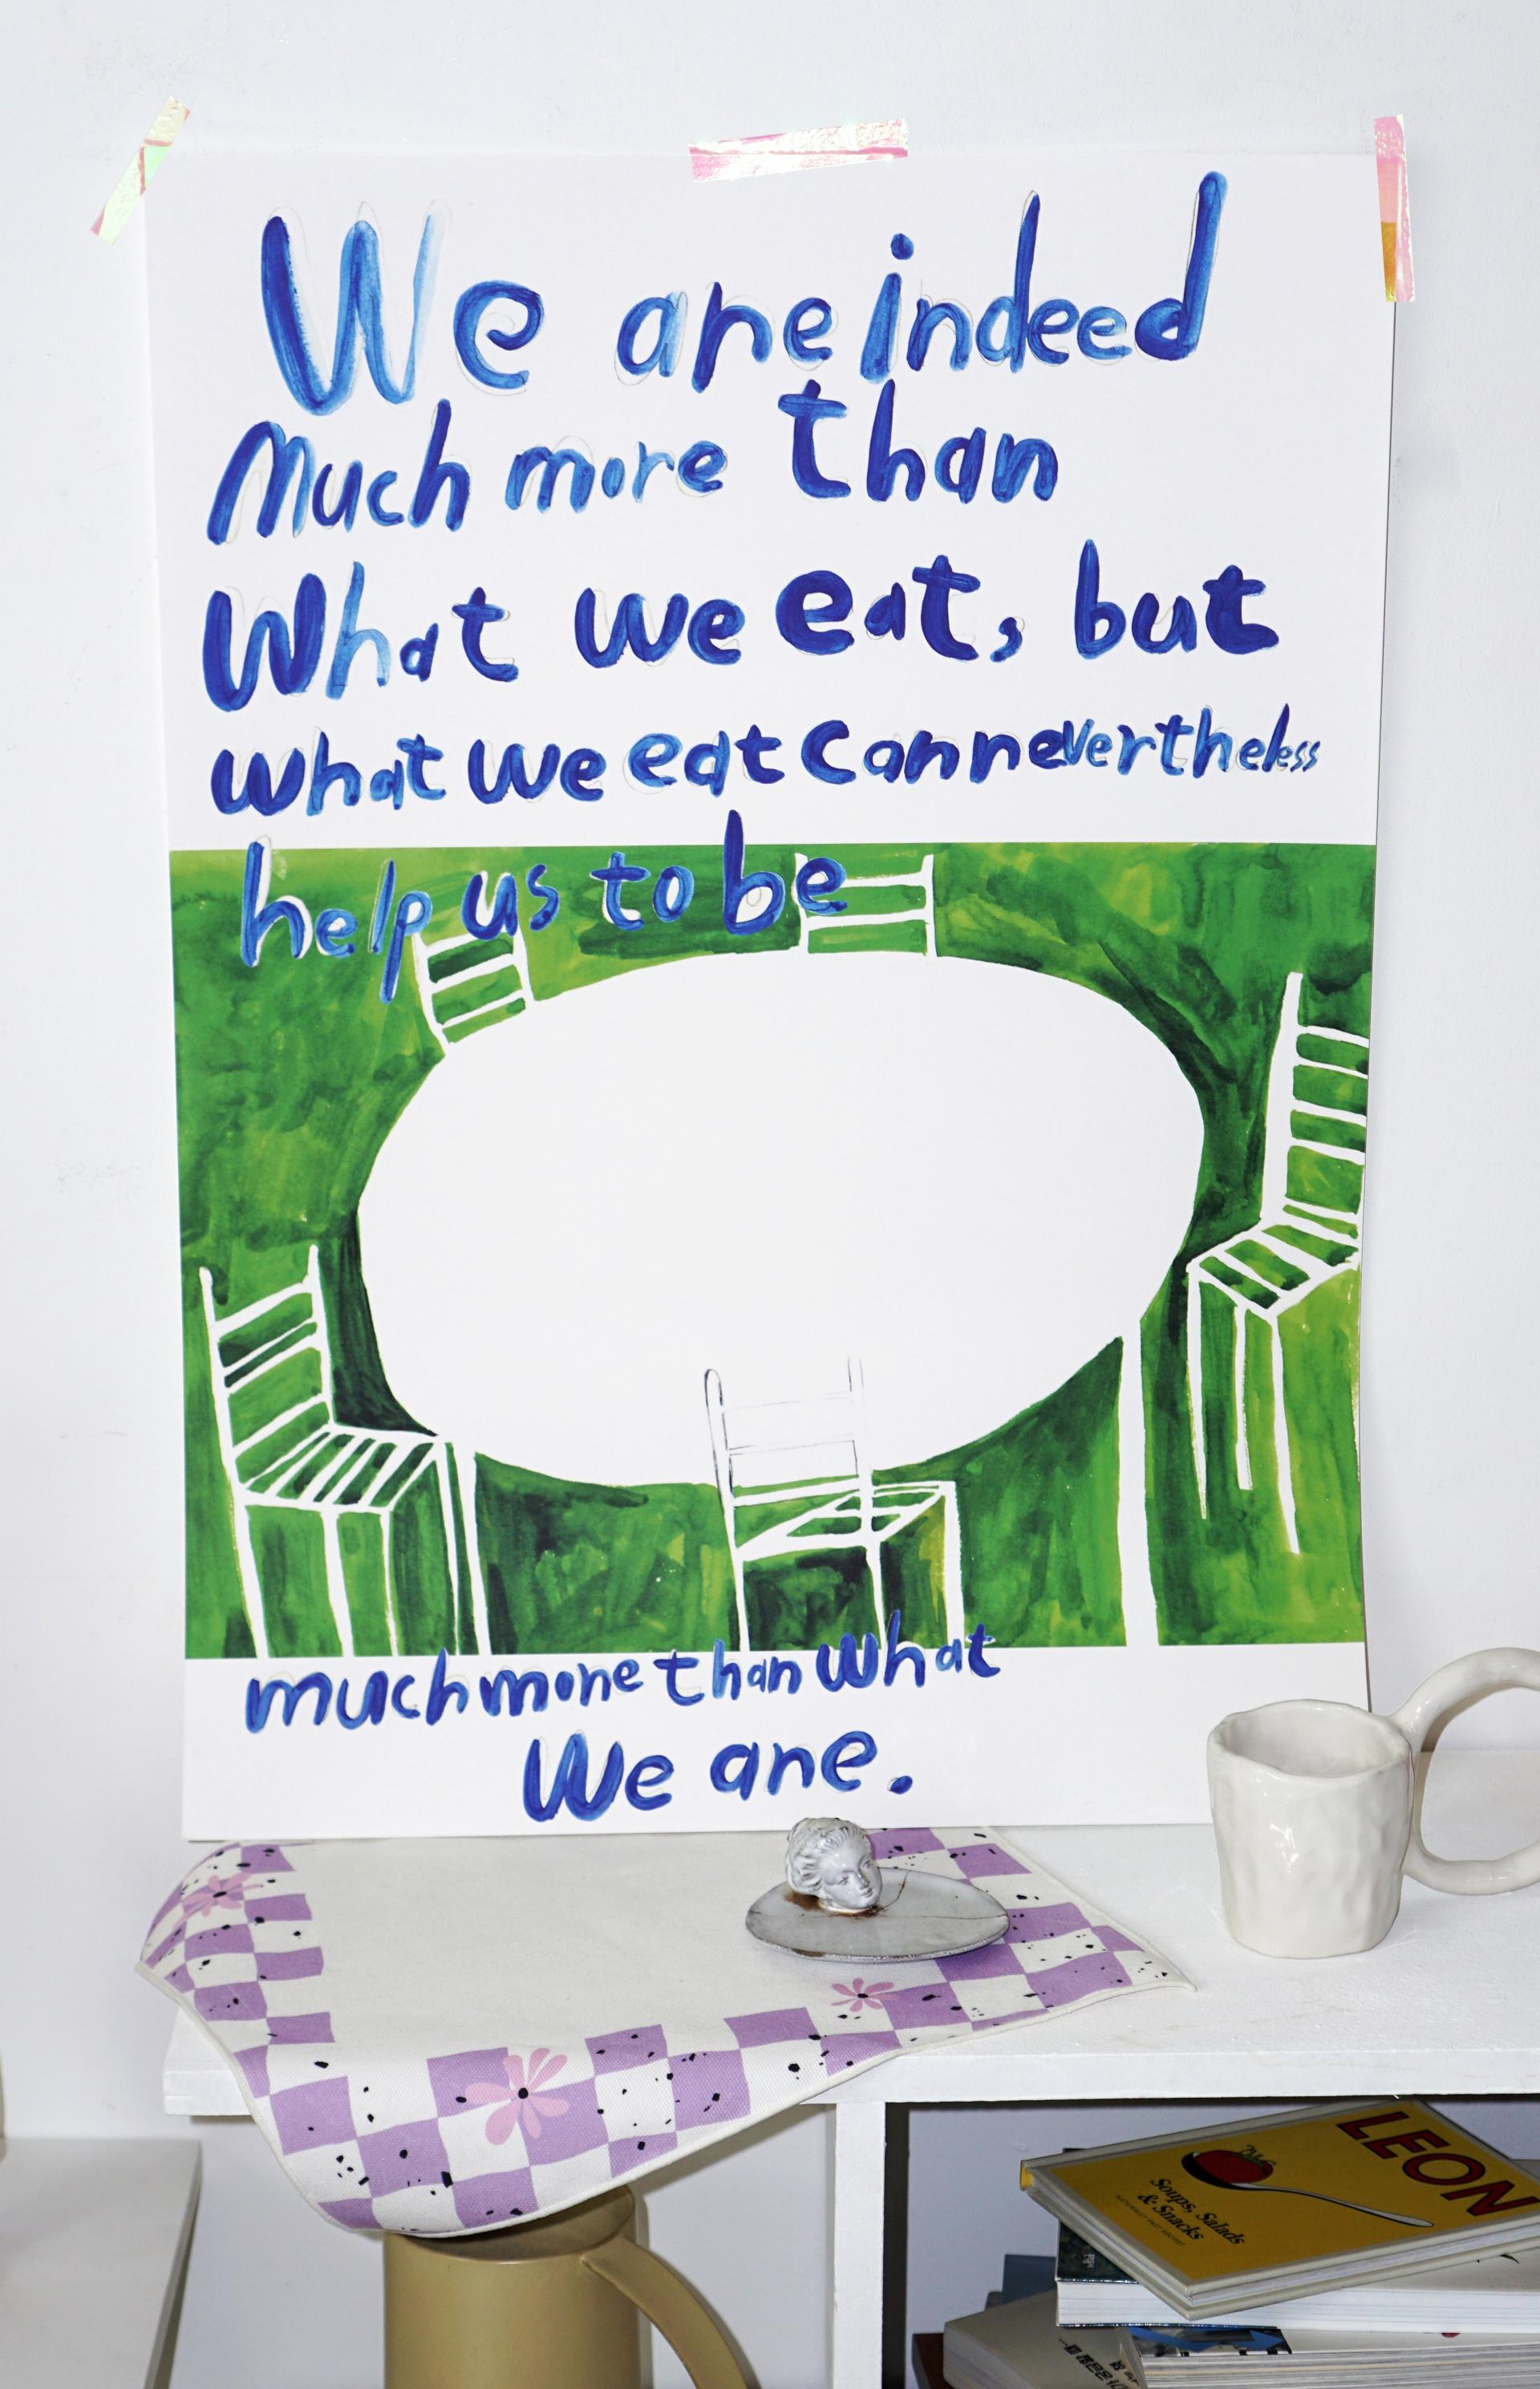 We are indeed
Much more than
What we eat, but
what we eat can nevertheless
help us to be
much more than what
We are.
LEON
Soups, Salads
& Snacks
NATURALLY FAST RECIPES